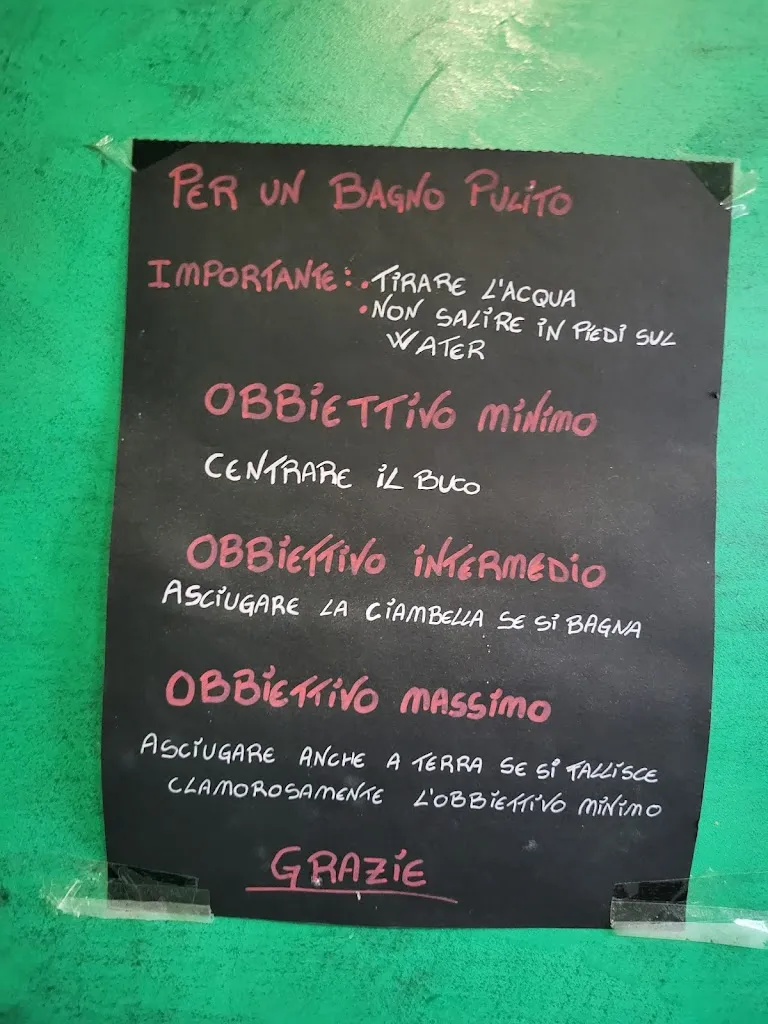 PER UN BAGNO PULITO
IMPORTANTE: • TIRARE L'ACQUA
• NON SALIRE IN PIEDI SUL
WATER
OBBIETTIVO MINIMO
CENTRARE IL BUCO
OBBIETTIVO INTERMEDIO
ASCIUGARE LA CIAMBELLA SE SI BAGNA
OBBIETTIVO MASSIMO
ASCIUGARE ANCHE A TERRA SE SI FALLISCE
CLAMOROSAMENTE L'OBBIETTIVO MINIMO
GRAZIE